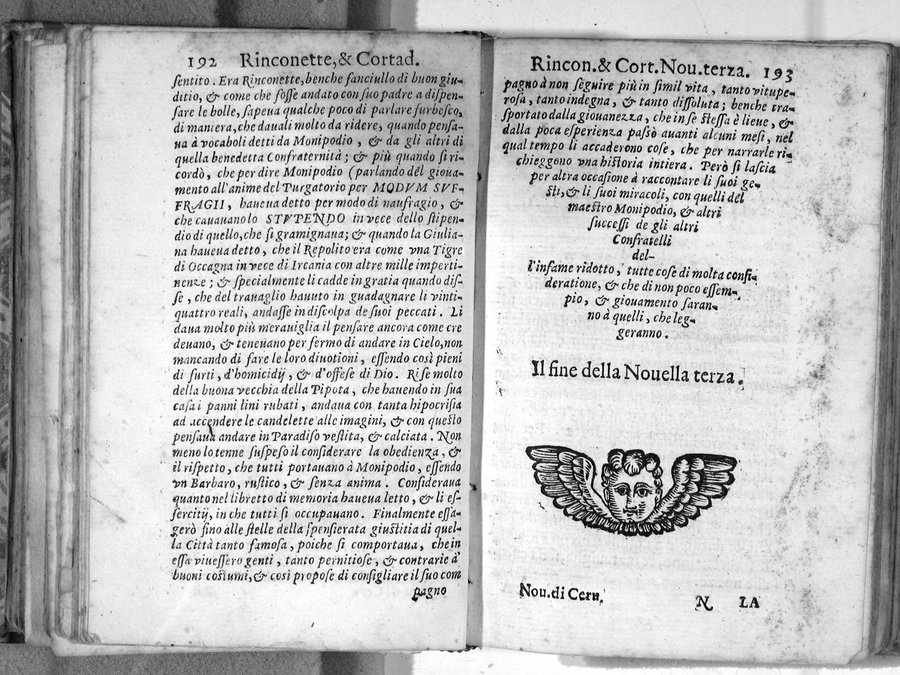 192 Rinconette, & Cortad.
sentito. Era Rinconette, benche fanciullo di buon giu-
ditio, & come che fosse andato con suo padre a dispen-
sare le bolle, sapeua qualche poco di parlare furbesco,
di maniera, che dauali molto da ridere, quando pensa-
ua à vocaboli detti da Monipodio, & da gli altri di
quella benedetta Confraternità; & più quando si ri-
cordò, che per dire Monipodio (parlando del gioua-
mento all'anime del Purgatorio per MODVM SVF-
FRAGII, haueua detto per modo di naufragio, & che
che cauauanolo STVPENDO in vece dello stipen-
dio di quello, che si gramignaua; & quando la Giulia-
na haueua detto, che il Repolito era come vna Tigre
di Occagna in vece di Ircania con altre mille imperti-
nenze; & specialmente li cadde in gratia quando dis-
se, che del trauaglio hauuto in guadagnare li vinti-
quattro reali, andasse in discolpa de suoi peccati. Li
daua molto più merauiglia il pensare ancora come cre
deuano, & teneuano per fermo di andare in Cielo, non
mancando di fare le loro diuotioni, essendo così pieni
di furti, d'homicidij, & d'offese di Dio. Rise molto
della buona vecchia della Pipota, che hauendo in sua
casa i panni lini rubati, andaua con tanta hipocrisia
ad accendere le candelette alle imagini, & con questo
pensaua andare in Paradiso vestita, & calciata. Non
meno lo tenne suspeso il considerare la obedienza, &
il rispetto, che tutti portauano à Monipodio, essendo
vn Barbaro, rustico, & senza anima. Consideraua
quanto nel libretto di memoria haueua letto, & li es-
sercitij, in che tutti si occupauano. Finalmente essa-
gerò fino alle stelle della spensierata giustitia di quel-
la Città tanto famosa, poiche si comportaua, che in
essa viuessero genti, tanto pernitiose, & contrarie a'
buoni costumi, & così propose di consigliare il suo com
pagno
Rincon. & Cort. Nou. terza. 193
pagno à non seguire più in simil vita, tanto vitupe-
rosa, tanto indegna, & tanto dissoluta; benche tra-
sportato dalla giouanezza, che in se stessa è lieue, &
dalla poca esperienza passò auanti alcuni mesi, nel
qual tempo li accaderono cose, che per narrarle ri-
chieggono vna historia intiera. Però si lascia
per altra occasione à raccontare li suoi ge-
sti, & li suoi miracoli, con quelli del
maestro Monipodio, & altri
successi de gli altri
Confratelli
del-
l'infame ridotto, tutte cose di molta consi-
deratione, & che di non poco essem-
pio, & giouamento saran-
no à quelli, che leg-
geranno.
Il fine della Nouella terza.
Nou. di Ceru. N LA